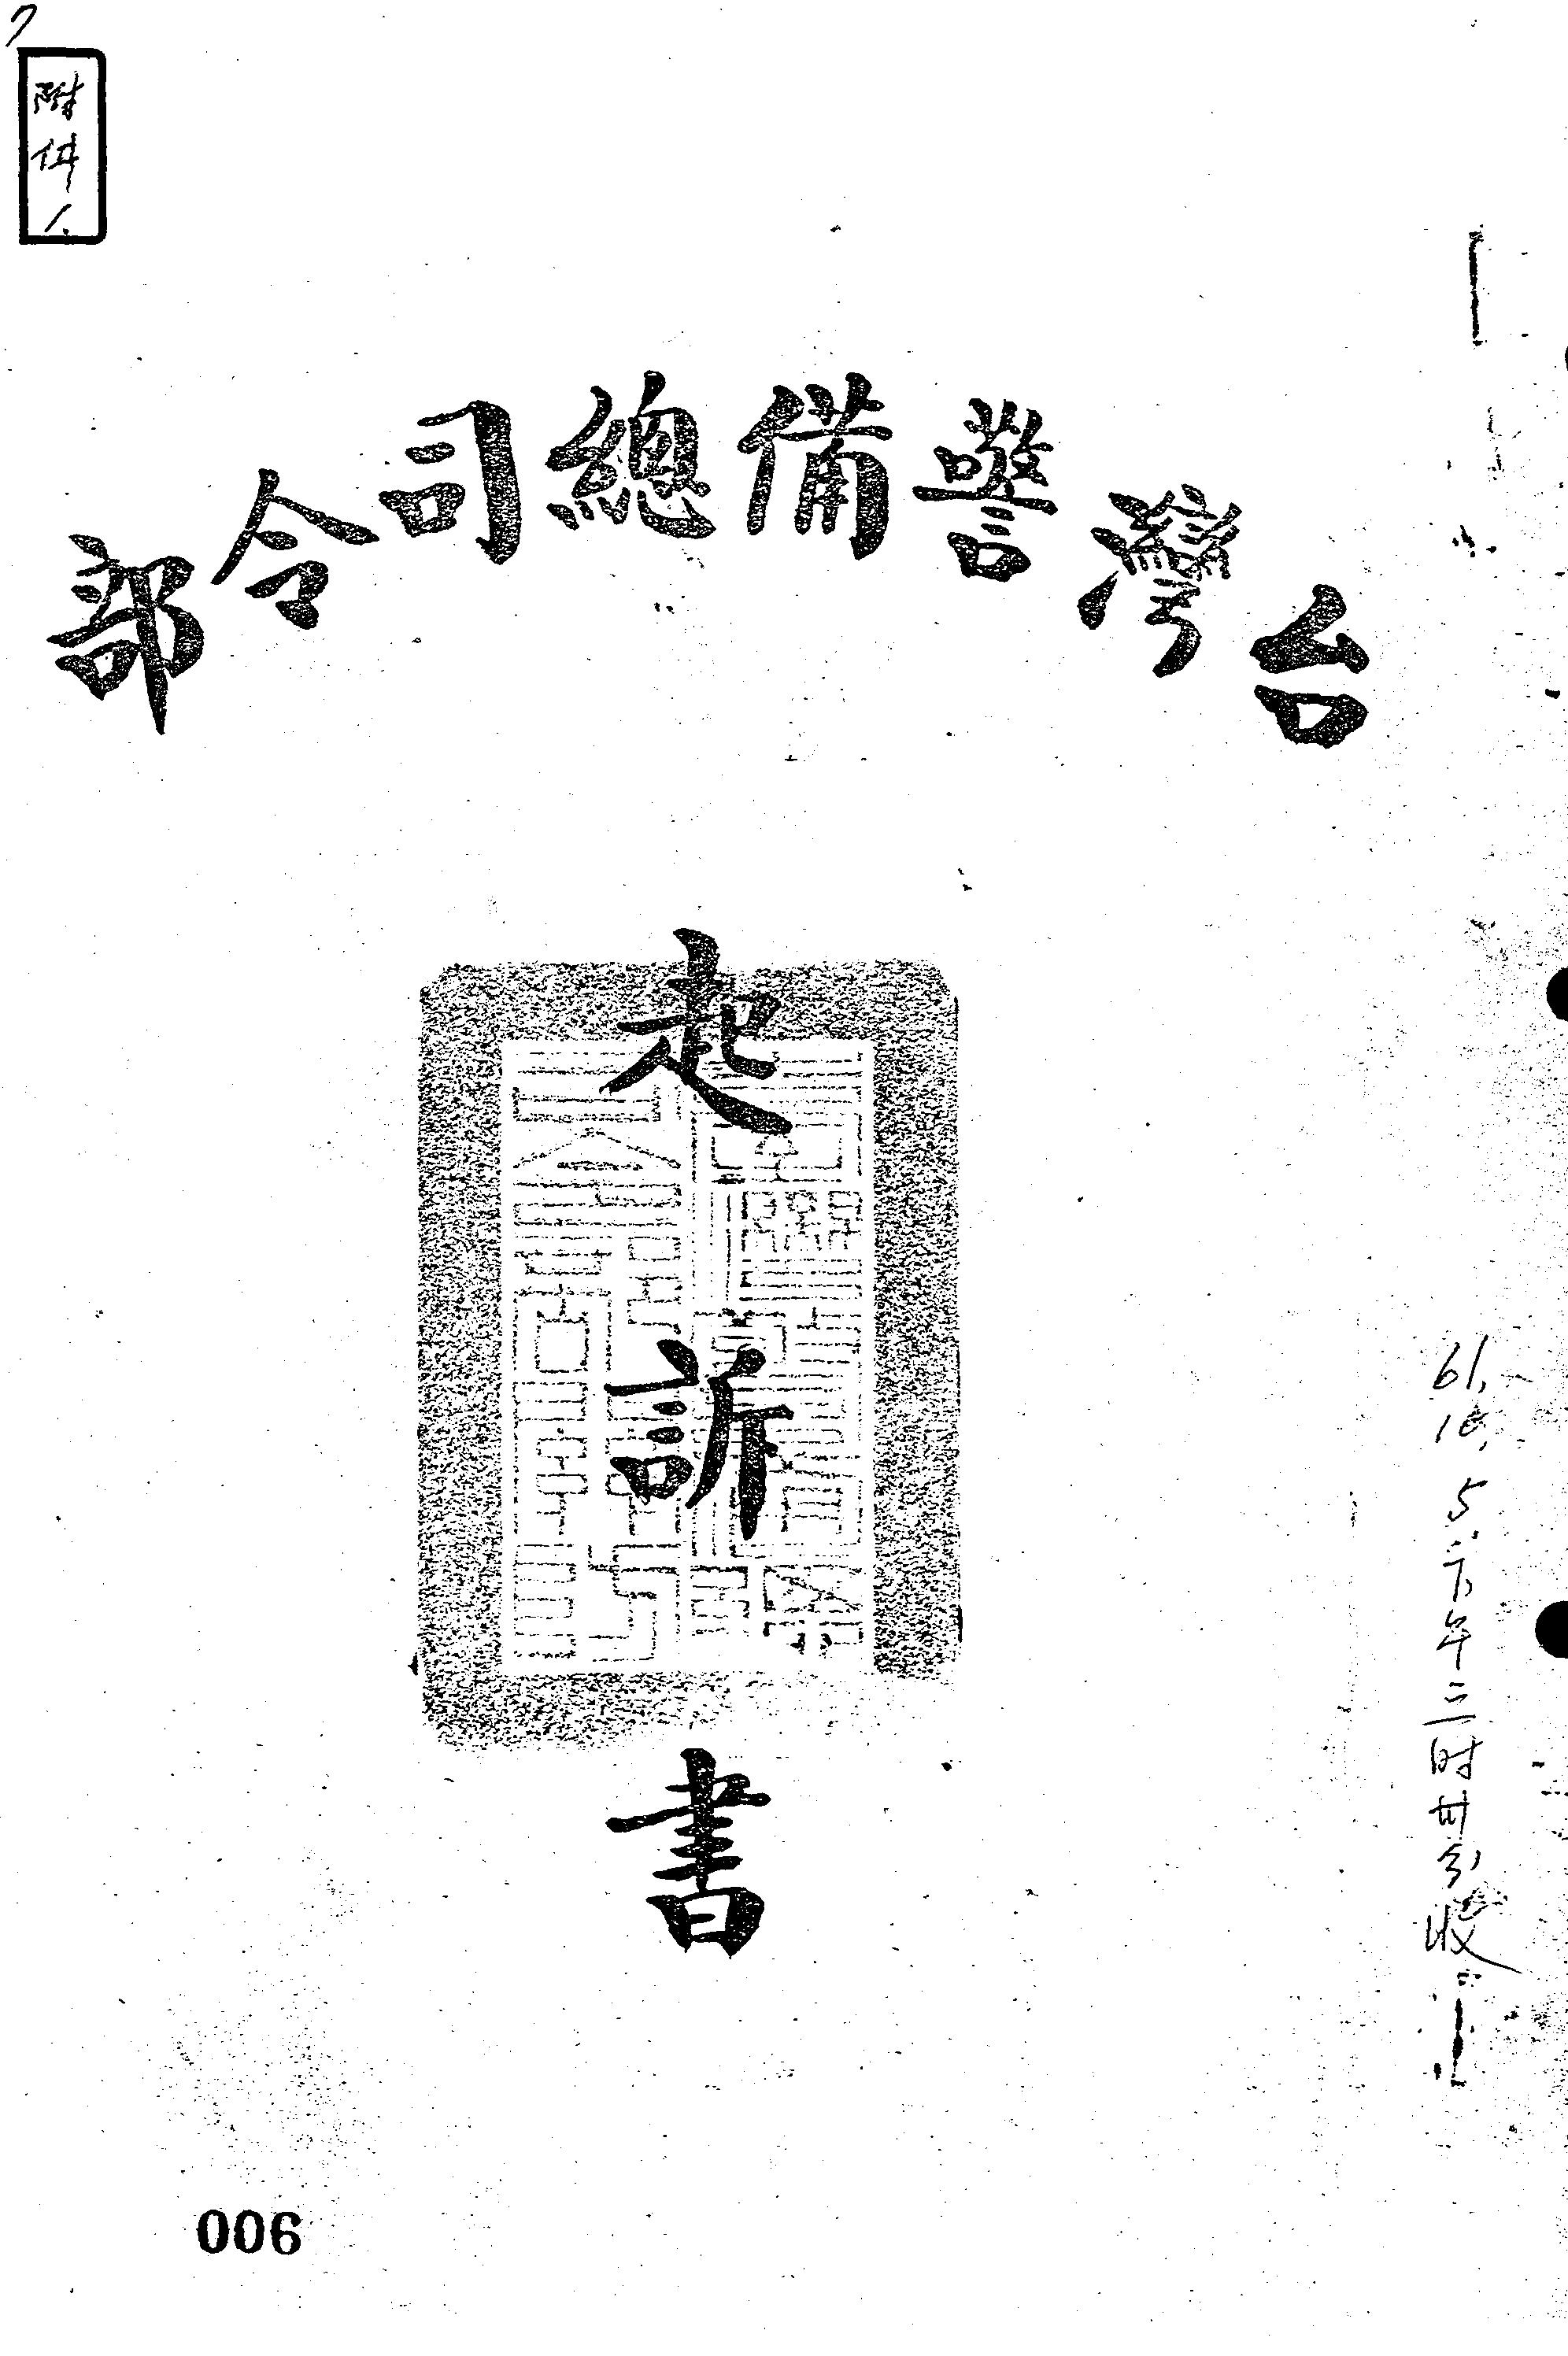 附件1.
台灣警備總司令部
起訴書
61,10,5.下午三時廿分收
006